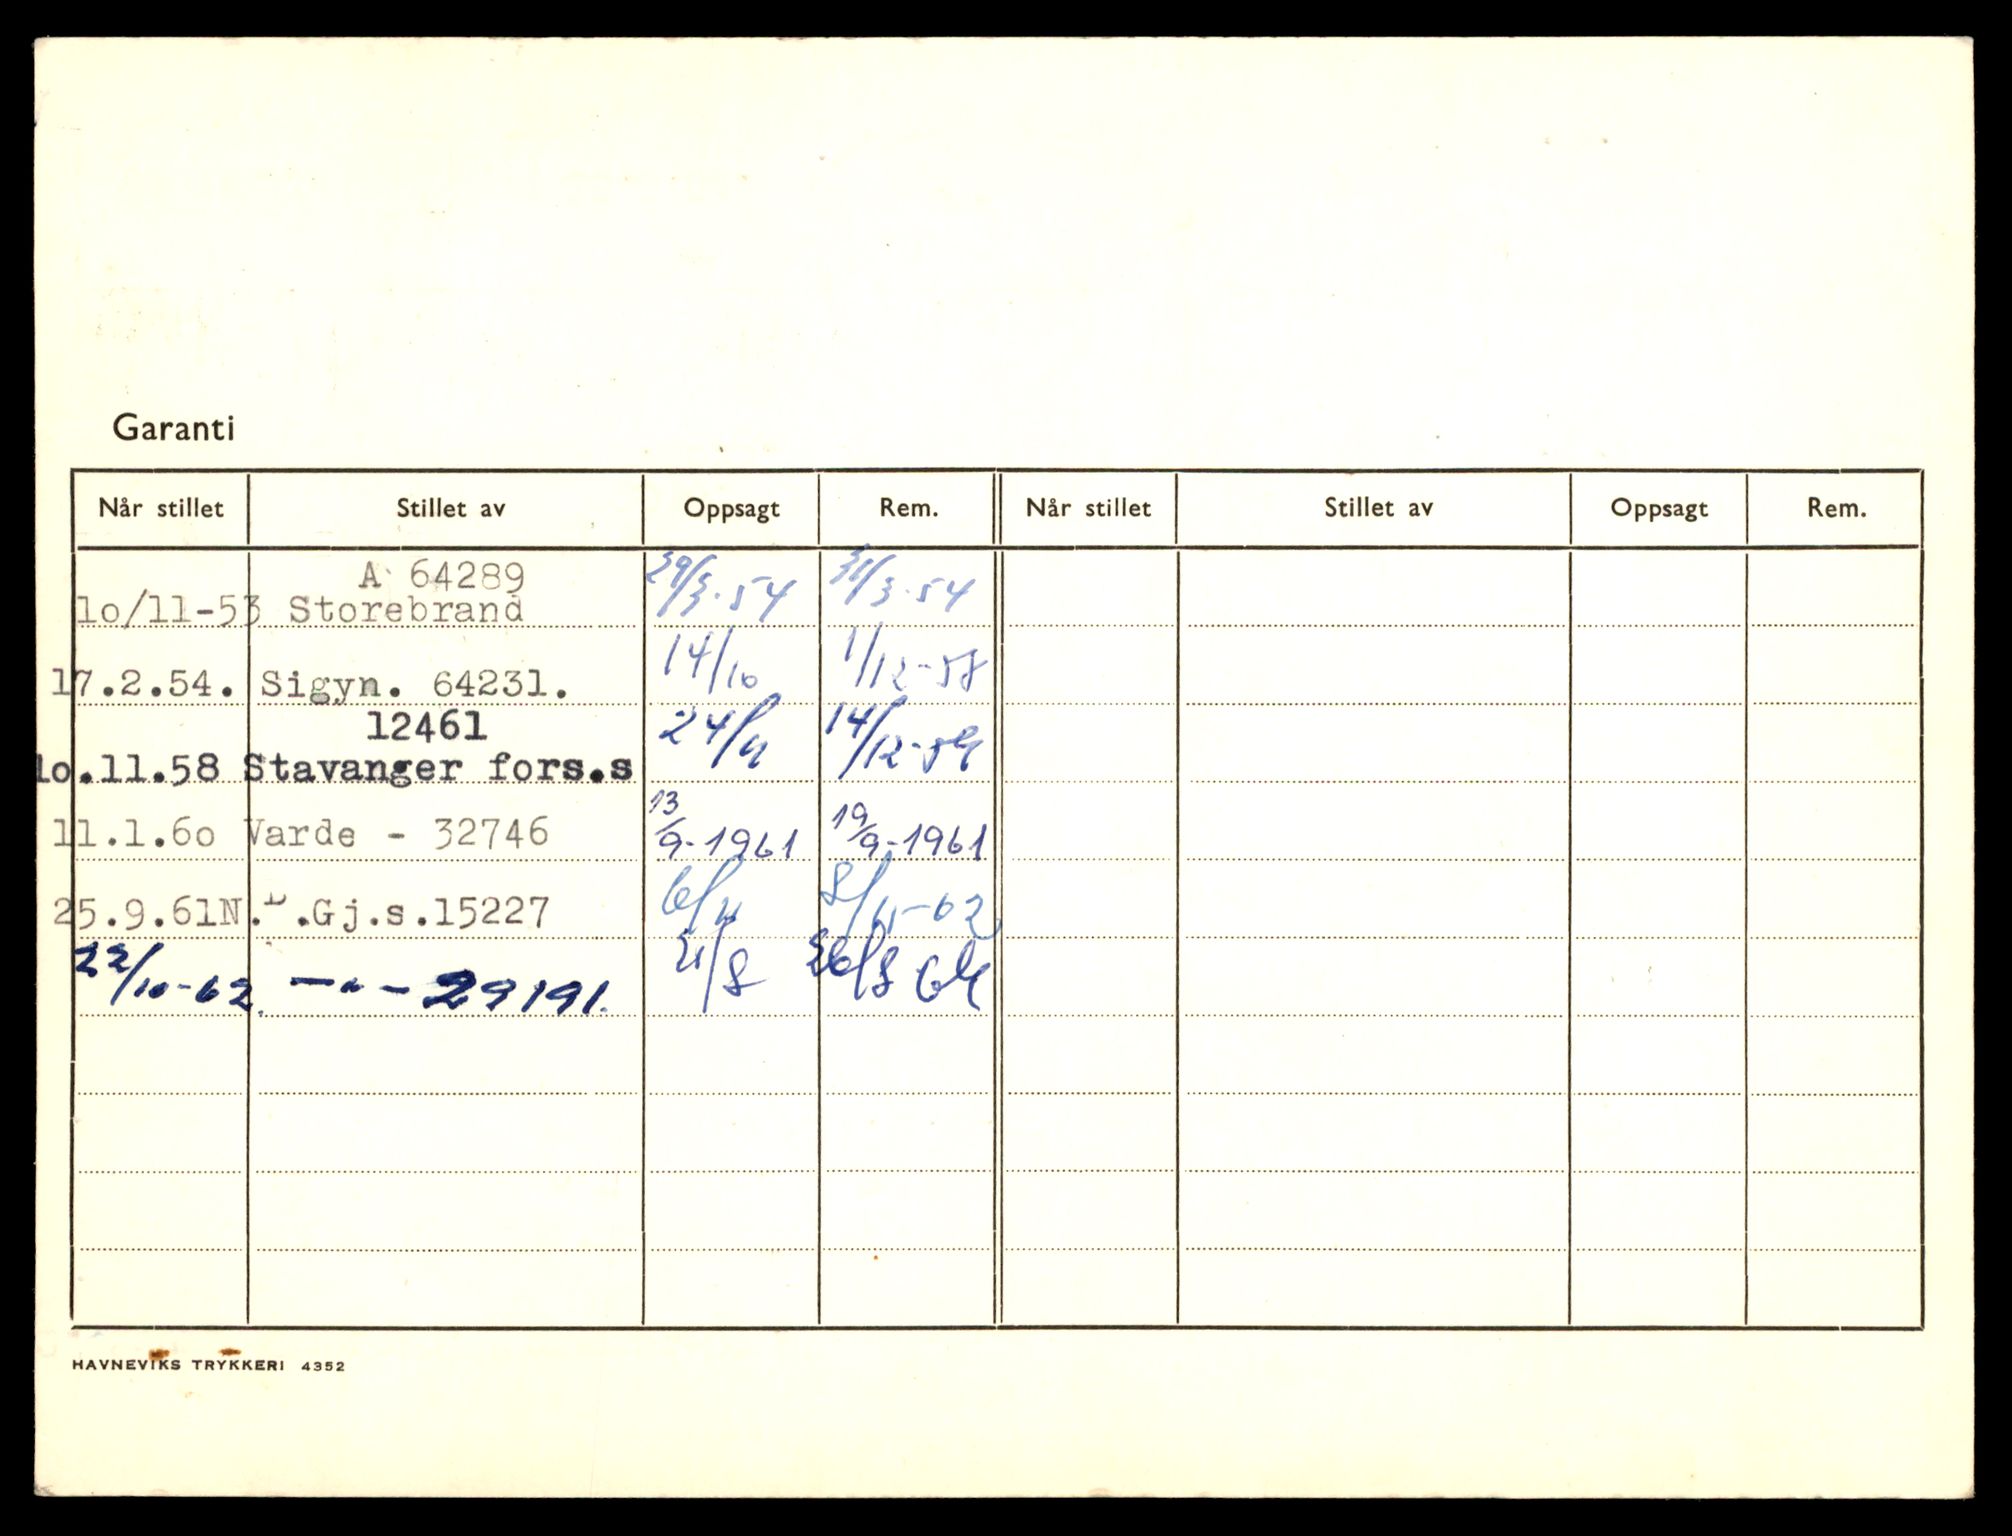 Garanti
Når stillet Stillet av Oppsagt Rem. Når stillet Stillet av Oppsagt Rem.
A 64289
10/11-53 Storebrand 29/3.54 31/3.54
17.2.54. Sigyn. 64231. 14/10 1/12-58
12461
10.11.58 Stavanger fors.s 24/11 14/12-59
11.1.60 Varde - 32746 13/9-1961 19/9-1961
25.9.61 N.L.Gj.s.15227 6/11 8/11-62
22/10-62. -"- 29191. 21/8 26/8 64
HAVNEVIKS TRYKKERI 4352